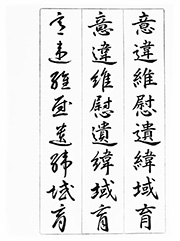 意違維慰遺緯域育
意違維慰遺緯域育
意違維慰遺緯域育